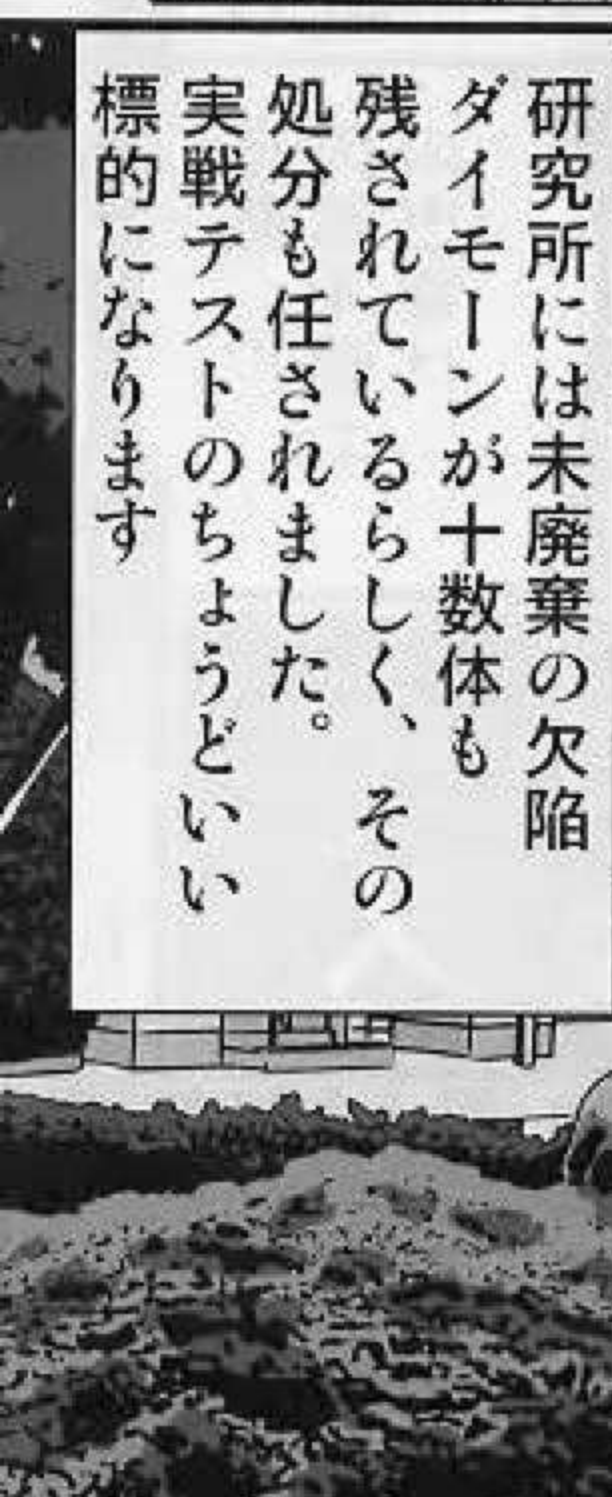 研究所には未廃棄の欠陥
ダイモーンが十数体も
残されているらしく、その
処分も任されました。
実戦テストのちょうどいい
標的になります